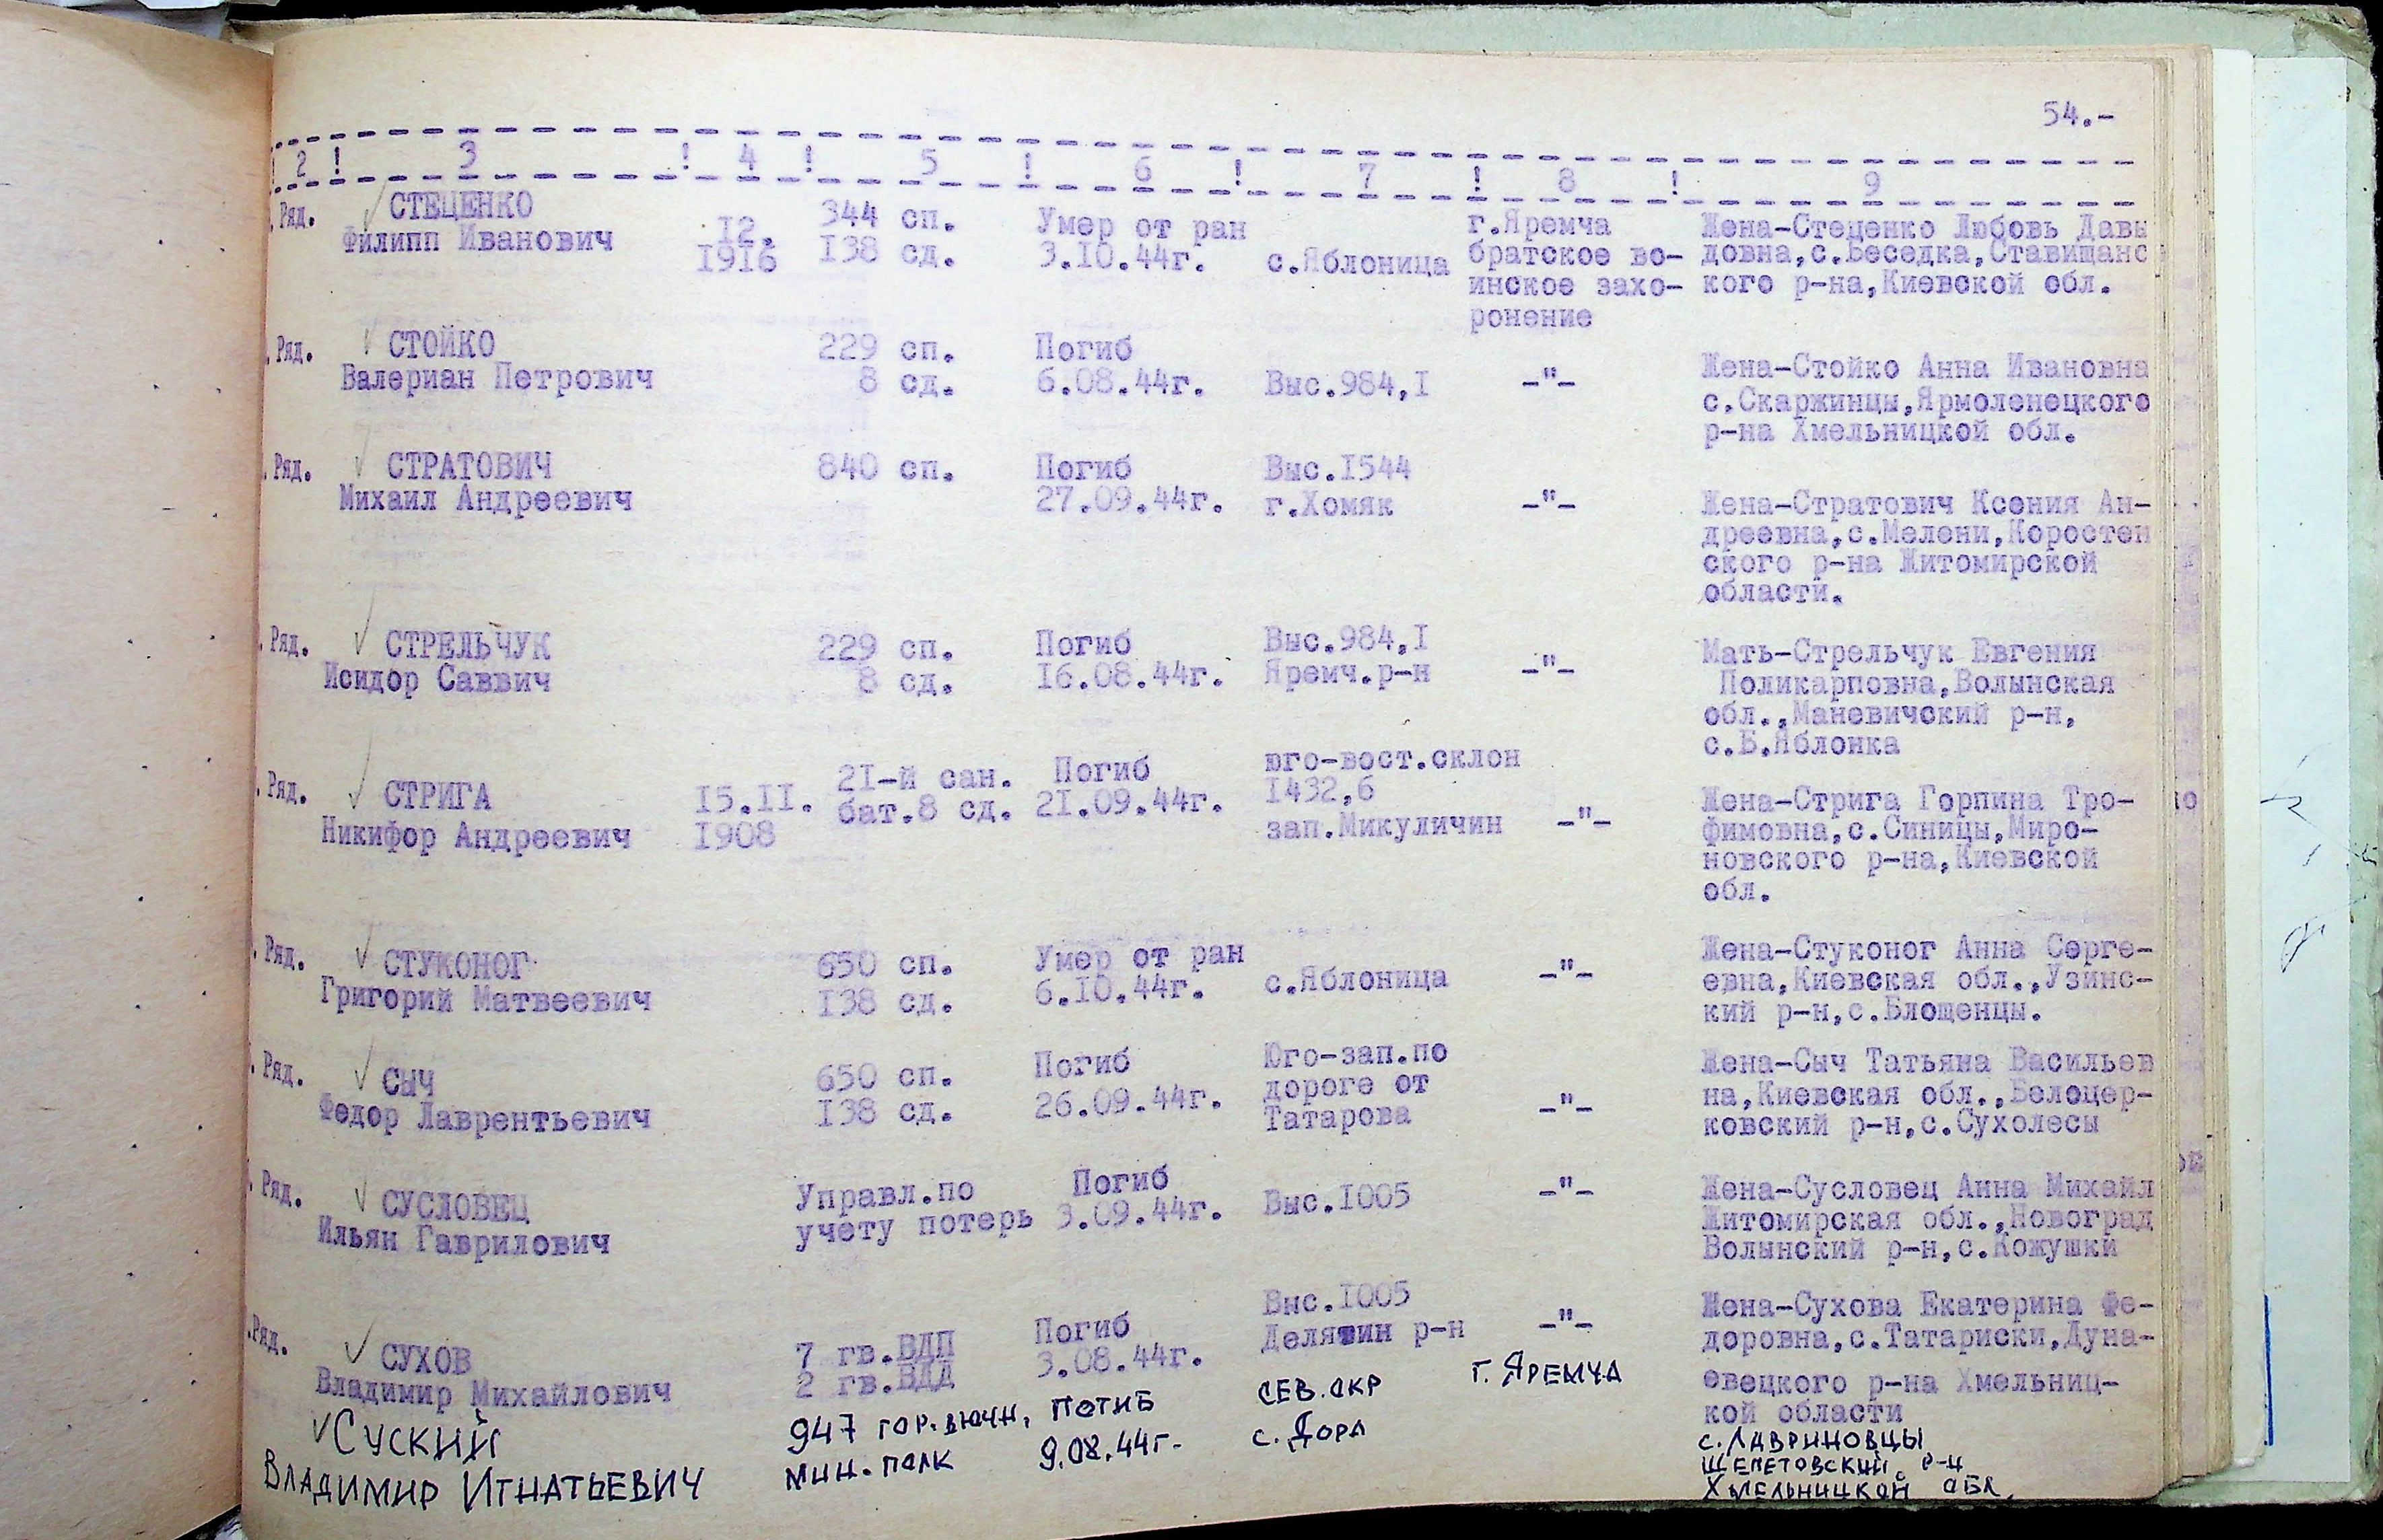 54.-
! 2 ! 3 ! 4 ! 5 ! 6 ! 7 ! 8 ! 9
. Ряд. СТЕЦЕНКО
Филипп Иванович
12.
1916
344 сп.
138 сд.
Умер от ран
3.10.44г.
с.Яблоница
г.Яремча
братское во-
инское захо-
ронение
Жена-Стеценко Любовь Давы
довна,с.Беседка,Ставищанс
кого р-на,Киевской обл.
. Ряд. СТОЙКО
Валериан Петрович
229 сп.
8 сд.
Погиб
6.08.44г.
Выс.984,1
-"-
Жена-Стойко Анна Ивановна
с.Скаржинцы,Ярмоленецкого
р-на Хмельницкой обл.
. Ряд. СТРАТОВИЧ
Михаил Андреевич
840 сп.
Погиб
27.09.44г.
Выс.1544
г.Хомяк
-"-
Жена-Стратович Ксения Ан-
дреевна,с.Мелени,Коростен
ского р-на Житомирской
области.
. Ряд. СТРЕЛЬЧУК
Исидор Саввич
229 сп.
8 сд.
Погиб
16.08.44г.
Выс.984,1
Яремч.р-н
-"-
Мать-Стрельчук Евгения
Поликарповна,Волынская
обл.,Маневичский р-н,
с.Б.Яблонка
. Ряд. СТРИГА
Никифор Андреевич
15.11.
1908
21-й сан.
бат.8 сд.
Погиб
21.09.44г.
юго-вост.склон
1432,6
зап.Микуличин
-"-
Жена-Стрига Горпина Тро-
фимовна,с.Синицы,Миро-
новского р-на,Киевской
обл.
. Ряд. СТУКОНОГ
Григорий Матвеевич
650 сп.
138 сд.
Умер от ран
6.10.44г.
с.Яблоница
-"-
Жена-Стуконог Анна Серге-
евна,Киевская обл.,Узинс-
кий р-н,с.Блощенцы.
. Ряд. СЫЧ
Федор Лаврентьевич
650 сп.
138 сд.
Погиб
26.09.44г.
Юго-зап.по
дороге от
Татарова
-"-
Жена-Сыч Татьяна Васильев
на,Киевская обл.,Белоцер-
ковский р-н,с.Сухолесы
. Ряд. СУСЛОВЕЦ
Ильян Гаврилович
Управл.по
учету потерь
Погиб
3.09.44г.
Выс.1005
-"-
Жена-Сусловец Анна Михайл
Житомирская обл.,Новоград
Волынский р-н,с.Кожушки
.Ряд. СУХОВ
Владимир Михайлович
7 гв.ВДП
2 гв.ВДД
Погиб
3.08.44г.
Выс.1005
Делятин р-н
-"-
Жена-Сухова Екатерина Фе-
доровна,с.Татариски,Дуна-
евецкого р-на Хмельниц-
кой области
СУСКИЙ
ВЛАДИМИР ИГНАТЬЕВИЧ
947 ГОР.ВЮЧН.
МИН. ПОЛК
ПОГИБ
9.08.44Г.
СЕВ. ОКР
С. ДОРА
Г. ЯРЕМЧА
С. ЛАВРИНОВЦЫ
ШЕПЕТОВСКИЙ Р-Н
ХМЕЛЬНИЦКОЙ ОБЛ.